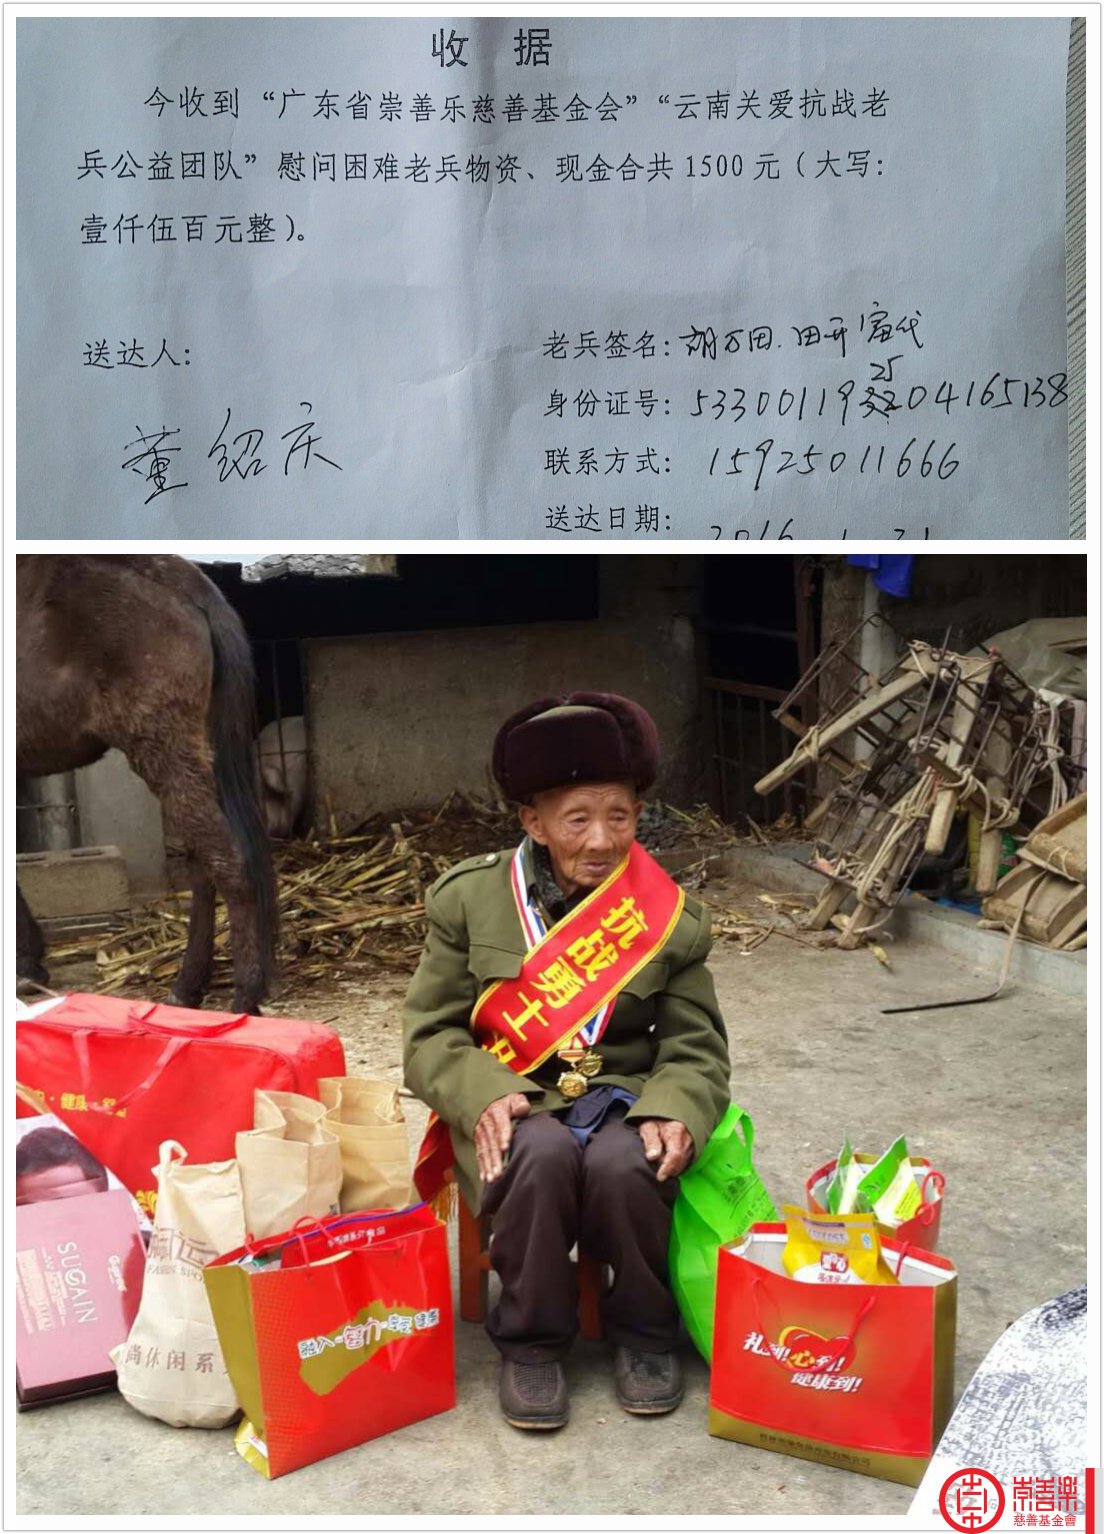 收 据
今收到“广东省崇善乐慈善基金会”“云南关爱抗战老
兵公益团队”慰问困难老兵物资、现金合共 1500 元（大写：
壹仟伍百元整）。
送达人：
董绍庆
老兵签名：胡万田.田开富代
25
身份证号：533001193204165138
联系方式：15925011666
送达日期：
2016 1 21
抗战勇士
·健康·
SUGAIN
尚休闲系
融入·智力·享受 健康
礼到!心到!
健康到!
崇善樂
慈善基金會